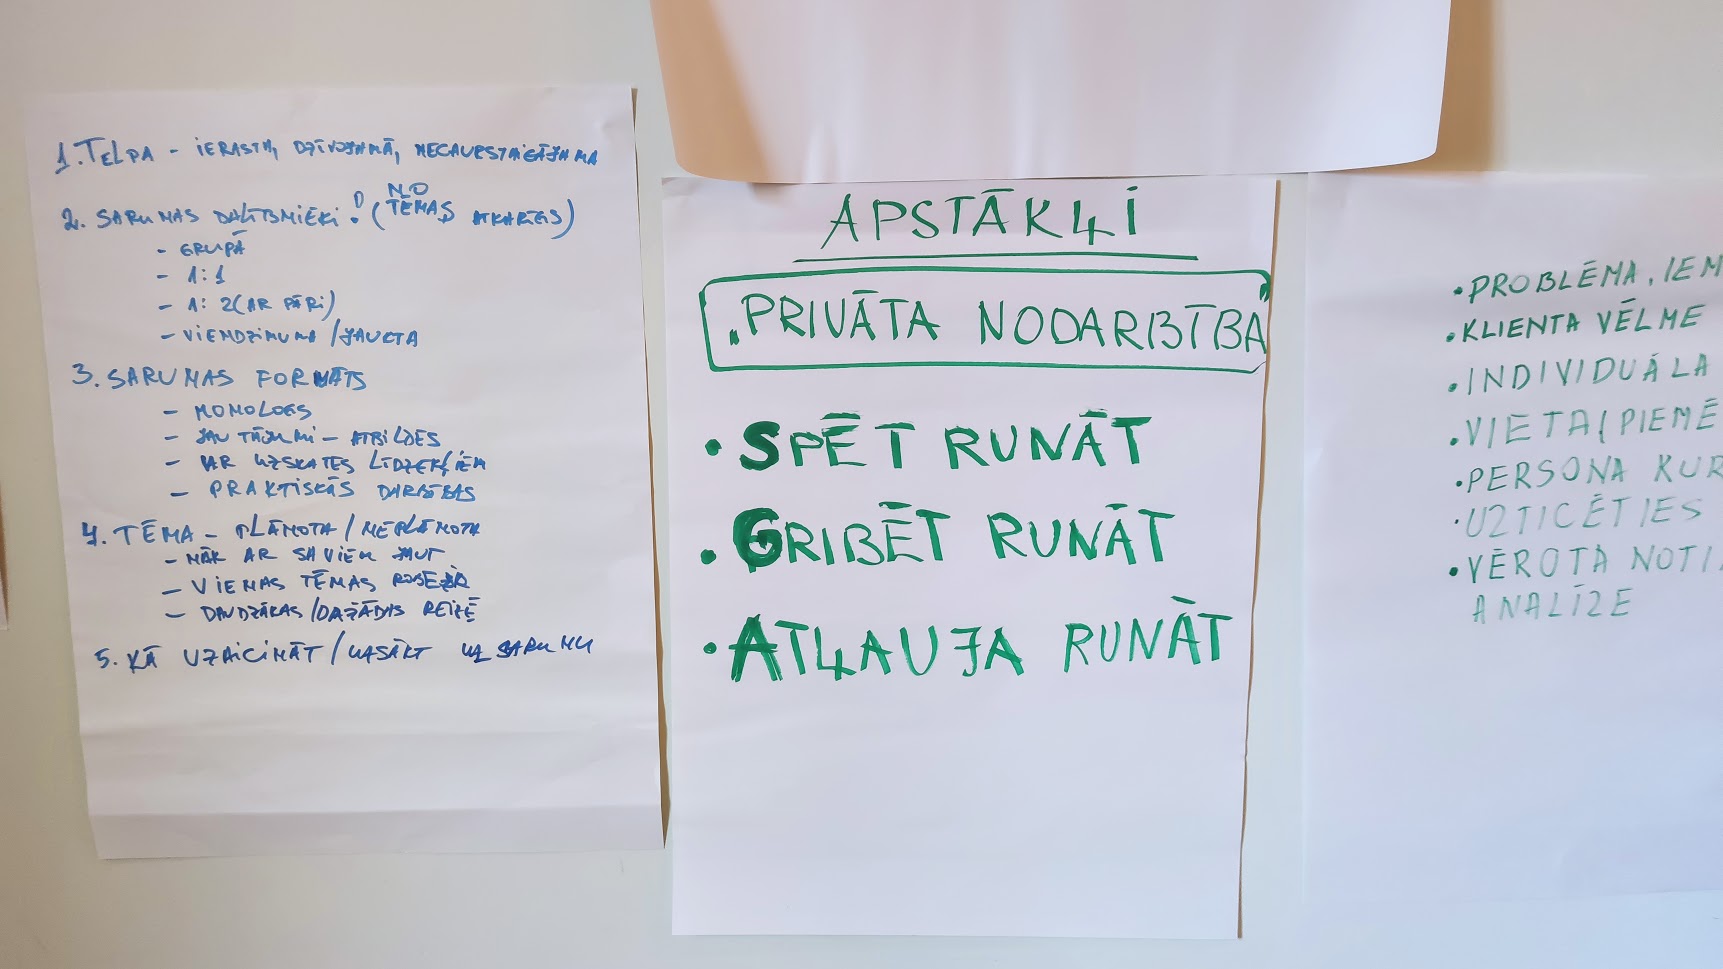 1. TELPA - IERASTA, DZĪVOJAMĀ, NECAURSTAIGĀJAMA
2. SARUNAS DALĪBNIEKI? (NO TĒMAS ATKARĪGS)
- GRUPĀ
- 1:1
- 1:2 (AR PĀRI)
- VIENDZIMUMA / JAUKTA
3. SARUNAS FORMĀTS
- MONOLOGS
- JAUTĀJUMI - ATBILDES
- AR UZSKATES LĪDZEKĻIEM
- PRAKTISKĀS DARBĪBAS
4. TĒMA - PLĀNOTA / NEPLĀNOTA
- NĀK AR SAVIEM JAUT
- VIENAS TĒMAS
- DAUDZĀKAS / DAŽĀDAS REIZĒ
5. KĀ UZAICINĀT / UZSĀKT UZ SARUNU
APSTĀKĻI
. PRIVĀTA NODARBĪBA
• SPĒT RUNĀT
• GRIBĒT RUNĀT
• ATĻAUJA RUNĀT
• PROBLĒMA, IEM
• KLIENTA VĒLME
• INDIVIDUĀLA
• VIETA (PIEMĒ
• PERSONA KUR
• UZTICĒTIES
• VĒROTA NOTI
ANALĪZE